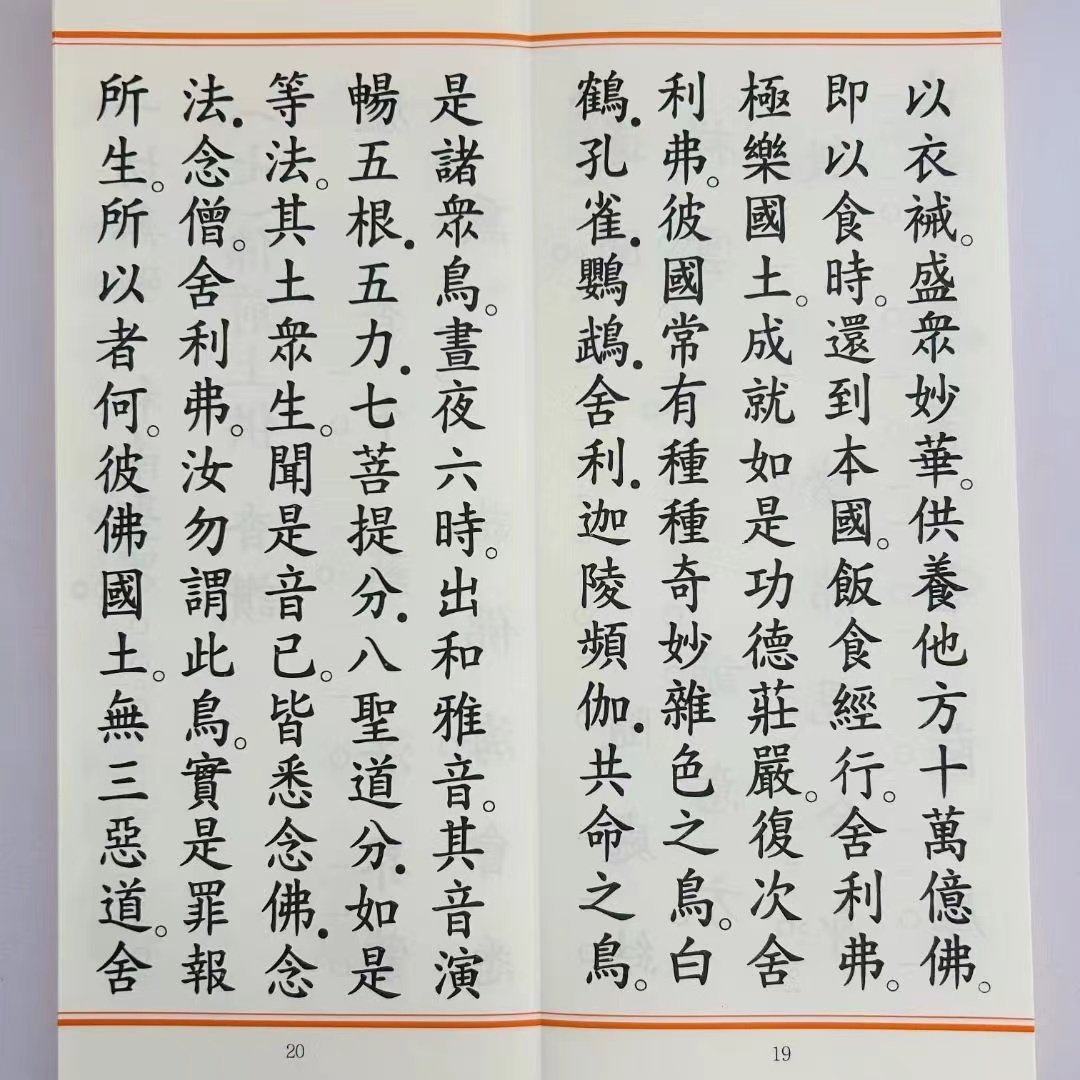 以衣裓。盛眾妙華。供養他方十萬億佛。
即以食時。還到本國。飯食經行。舍利弗。
極樂國土。成就如是功德莊嚴。復次舍
利弗。彼國常有種種奇妙雜色之鳥。白
鶴.孔雀.鸚鵡.舍利.迦陵頻伽.共命之鳥。
19
是諸眾鳥。晝夜六時。出和雅音。其音演
暢五根.五力.七菩提分.八聖道分.如是
等法。其土眾生。聞是音已。皆悉念佛.念
法.念僧。舍利弗。汝勿謂此鳥。實是罪報
所生。所以者何。彼佛國土。無三惡道。舍
20